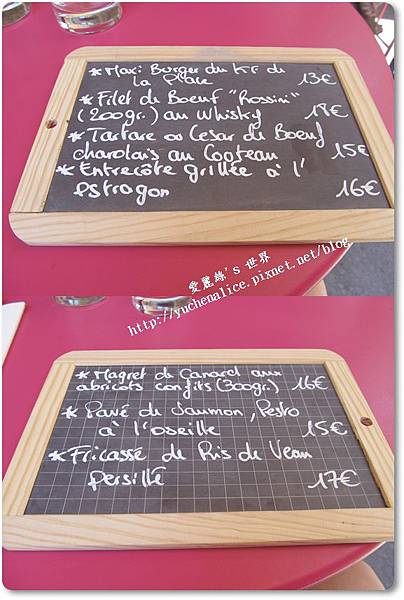 * Maxi Burger du
la Place 13€
* Filet de Boeuf "Rossini"
(200gr.) au Whisky 18€
* Tartare ou Cesar de Boeuf
charolais au Couteau 15€
* Entrecôte grillée à l'
Estragon 16€
愛麗絲's 世界
http://yuchenalice.pixnet.net/blog
* Magret de Canard aux
abricots confits (300gr.) 16€
* Pavé de Saumon, Pesto
à l'oseille 15€
* Fricassé de Ris de Veau
persillé 17€